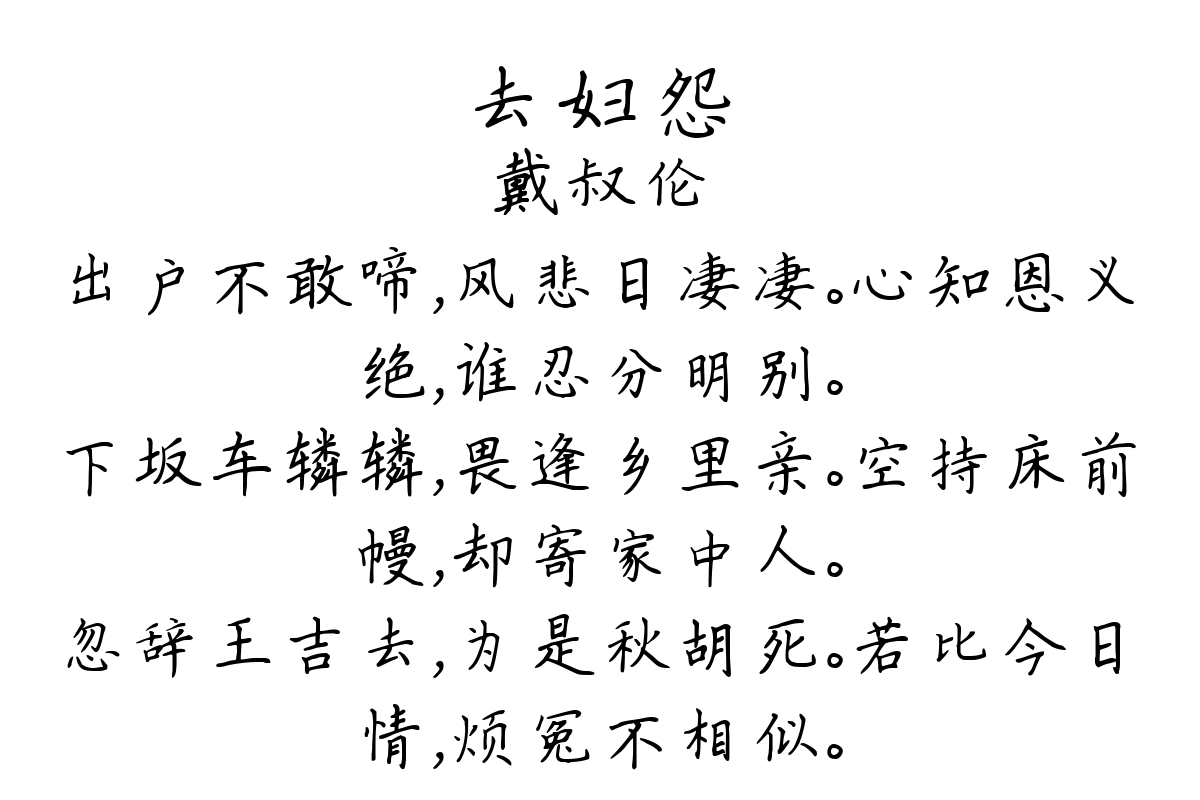 去妇怨
戴叔伦
出户不敢啼,风悲日凄凄。心知恩义
绝,谁忍分明别。
下坂车辚辚,畏逢乡里亲。空持床前
幔,却寄家中人。
忽辞王吉去,为是秋胡死。若比今日
情,烦冤不相似。